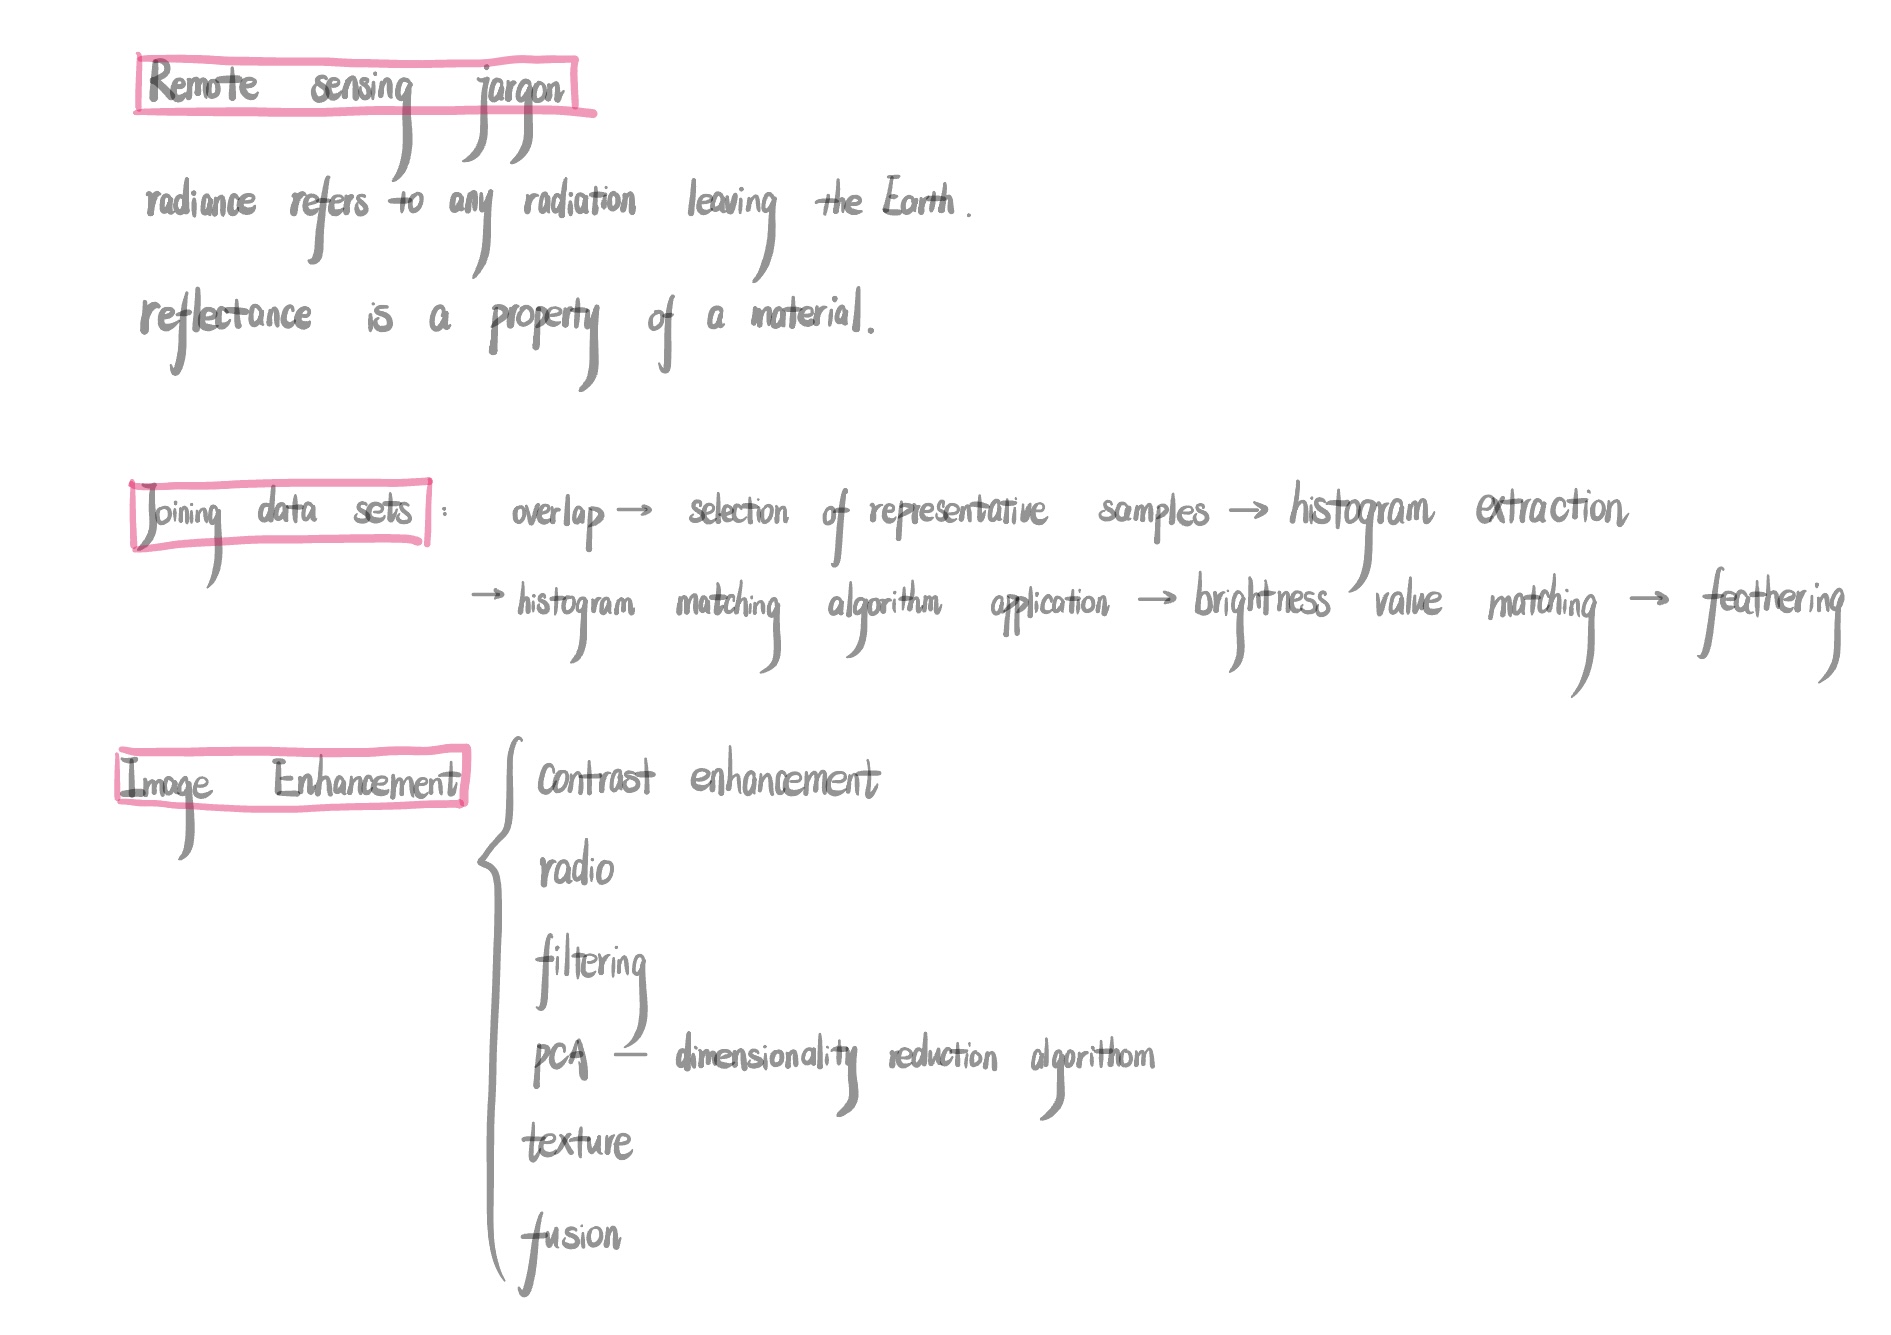 Remote sensing jargon
radiance refers to any radiation leaving the Earth.
reflectance is a property of a material.
Joining data sets : overlap → selection of representative samples → histogram extraction
→ histogram matching algorithm application → brightness value matching → feathering
Image Enhancement
contrast enhancement
radio
filtering
PCA — dimensionality reduction algorithom
texture
fusion